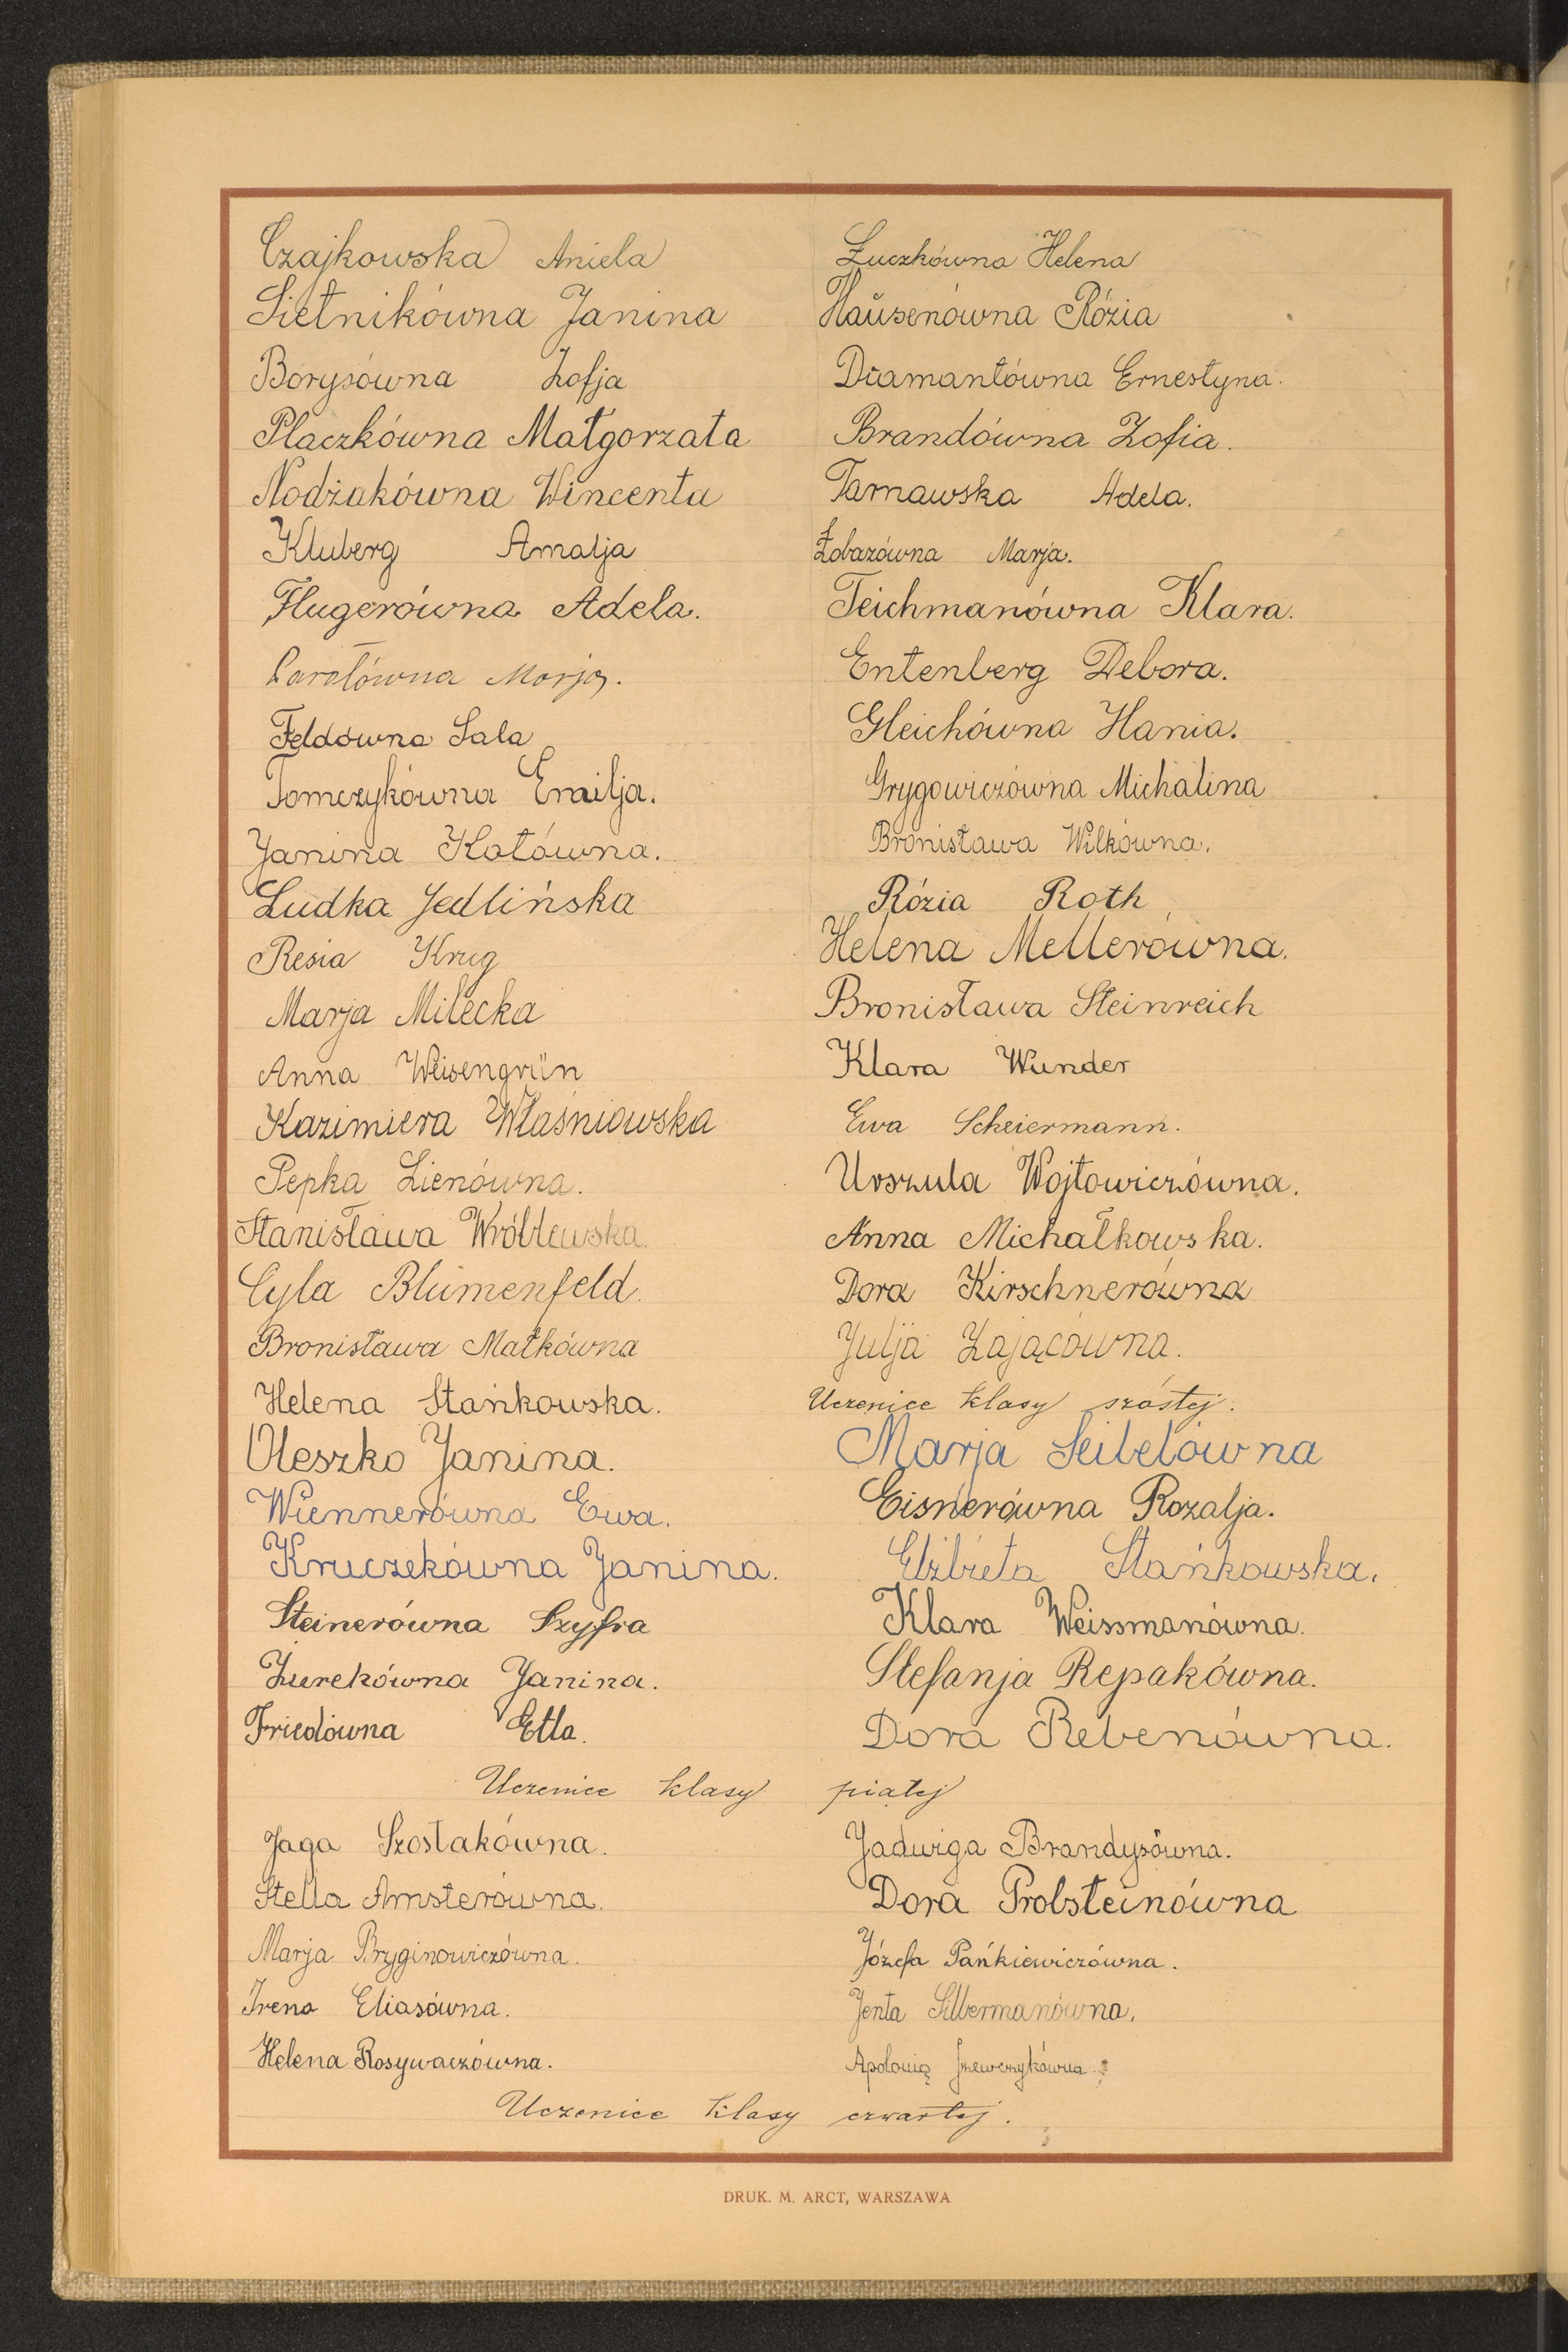 Czajkowska Aniela
Sietnikówna Janina
Borysówna Zofja
Płaczkówna Małgorzata
Nodżakówna Wincenta
Kluberg Amalja
Flugerówna Adela.
Marja.
Feldówna Sala
Tomczykówna Emilja.
Janina Kotówna.
Ludka Jedlińska
Resia Krug
Marja Milecka
Anna Weisengrün
Kazimiera Właśniowska
Pepka Lienówna.
Stanisława Wróblewska.
Cyla Blumenfeld.
Bronisława Małkówna
Helena Stańkowska.
Oleszko Janina.
Wiennerówna Ewa.
Kruczekówna Janina.
Steinerówna Szyfra
Żurekówna Janina.
Friedówna Etla.
Łuczkówna Helena
Haŭsenówna Rózia
Diamantówna Ernestyna.
Brandówna Zofia.
Tarnawska Adela.
Łobazówna Marja.
Teichmanówna Klara.
Entenberg Debora.
Gleichówna Hania.
Grygowiczówna Michalina
Bronisława Wilkówna.
Rózia Roth
Helena Mellerówna.
Bronisława Steinreich
Klara Wunder
Ewa Scheiermann.
Urszula Wojtowiczówna.
Anna Michałkowska.
Dora Kirschnerówna
Julja Zającówna.
Uczenice klasy szóstej.
Marja Seibelówna
Eisnerówna Rozalja.
Elżbieta Stańkowska.
Klara Weissmanówna.
Stefanja Repakówna.
Dora Rebenówna.
Uczenice klasy piątej
Jaga Szostakówna.
Stella Amsterówna.
Marja Bryginowiczówna.
Irena Eliasówna.
Helena Rosywaczówna.
Jadwiga Brandysówna.
Dora Probsteinówna
Józefa Pańkiewiczówna.
Jenta Silbermanówna.
Apolonią Szewczykówna.
Uczenice klasy czwartej.
DRUK. M. ARCT, WARSZAWA